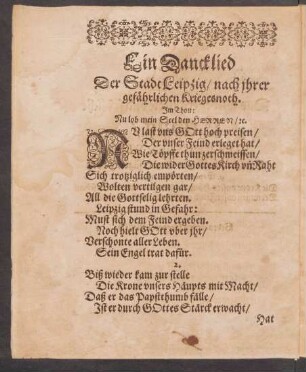 Ein Dancklied
Der Stadt Leipzig / nach jhrer
gefährlichen Kriegesnoth.
Im Thon:
Nu lob mein Seel den HERREN / ꝛc.
NU last vns GOtt hoch preisen /
Der vnser Feind erleget hat /
Wie Töpffe thun zerschmeissen /
Die wider Gottes Kirch vñ Raht
Sich trotziglich empörten /
Wolten vertilgen gar /
All die Gottselig lehrten.
Leipzig stund in Gefahr:
Must sich dem Feind ergeben.
Noch hielt GOtt vber jhr /
Verschonte aller Leben.
Sein Engel trat dafür.
2.
Biß wieder kam zur stelle
Die Krone vnsers Häupts mit Macht /
Daß er das Papstthumb fälle /
Ist er durch GOttes Stärck erwacht /
Hat